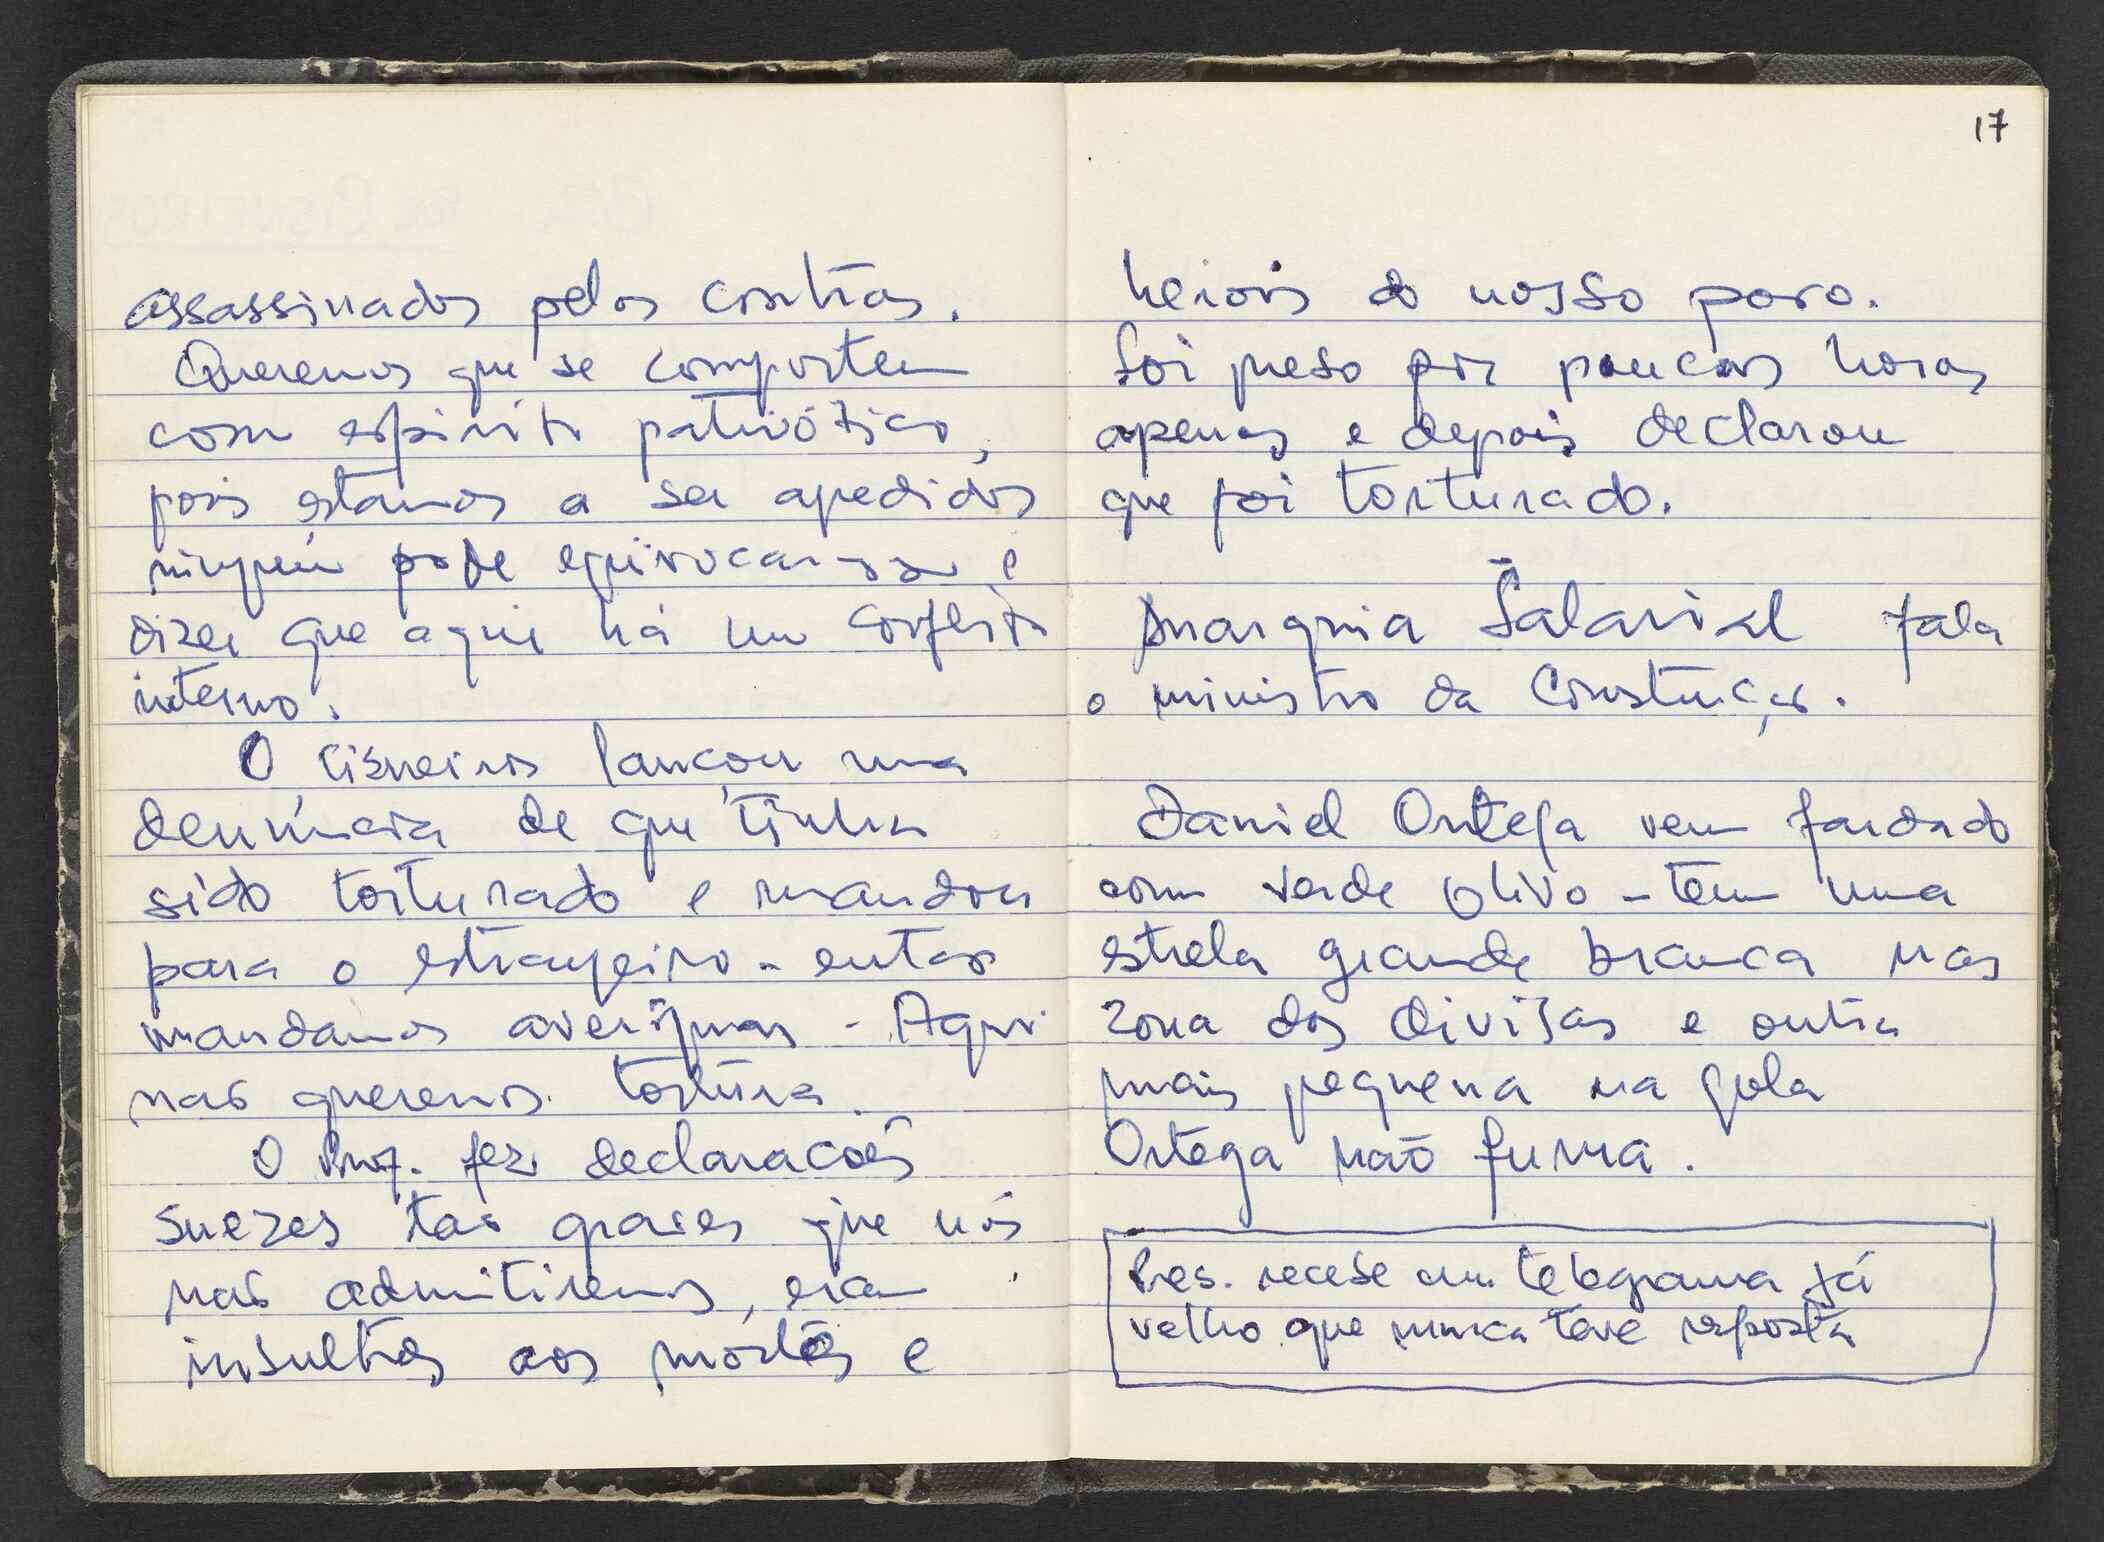 assassinados pelos contras.
Queremos que se comportem
com espirito patriótico,
pois estamos a ser
ninguém pode equivocar-se e
dizer que aqui há um conflito
interno.
O Cisneiros lançou uma
denúncia de que tinha
sido torturado e mandou
para o estrangeiro - entao
mandamos averiguar - Aqui
nao queremos tortura.
O Prof. fez declaracoẽs
suezes tao graves que nós
nao admitiremos, eram
insultos aos mortos e
17
heriois do nosso povo.
foi preso por poucas horas
apenas e depois declarou
que foi torturado.
Anarquia Salarial fala
o ministro da Construçao.
Daniel Ortega vem fardado
com verde olivo - tem uma
estrela grande branca nas
zona dos divisas e outra
mais pequena na gola
Ortega não fuma.
Pres. recebe um telegrama já
velho que nunca teve resposta